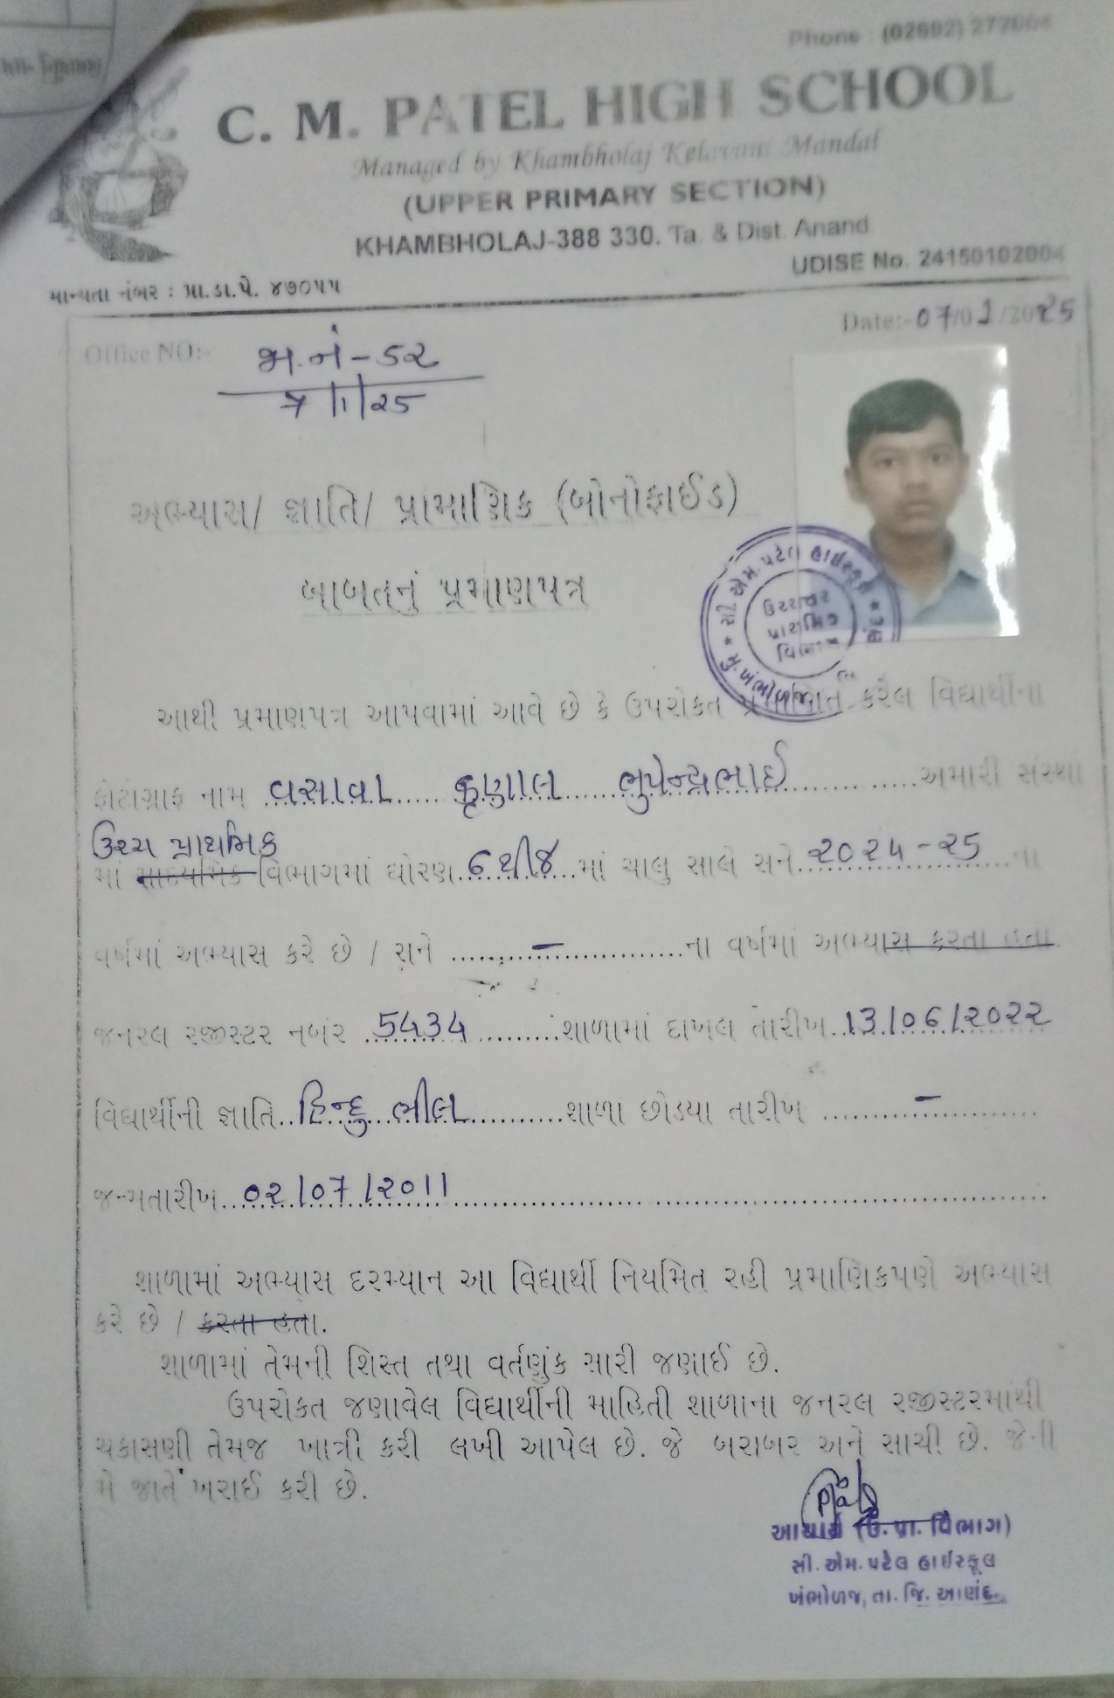 Phone : (02692) 277004
C. M. PATEL HIGH SCHOOL
Managed by Khambholaj Kelavani Mandal
(UPPER PRIMARY SECTION)
KHAMBHOLAJ-388 330. Ta. & Dist. Anand
UDISE No. 24150102004
માન્યતા નંબર : પ્રા.ડા.પે. ૪૭૦૫૫
Date:-07/01/2025
Office NO:- જા.નં-૬૨
૭/1/૨5
અભ્યાસ/ જ્ઞાતિ/ પ્રામાણિક (બોનોફાઈડ)
બાબતનું પ્રમાણપત્ર
ઉચ્ચતર
પ્રાથમિક
વિભાગ
આથી પ્રમાણપત્ર આપવામાં આવે છે કે ઉપરોક્ત પ્રમાણિત કરેલ વિદ્યાર્થીના
ફોટોગ્રાફ નામ વસાવા કૃણાલ ભુપેન્દ્રભાઈ અમારી સંસ્થા
ઉચ્ચ પ્રાથમિક
માં માધ્યમિક વિભાગમાં ધોરણ 6થી૪ માં ચાલુ સાલે સને ૨૦૨૫-૨5 ના
વર્ષમાં અભ્યાસ કરે છે / સને ..... - ..... ના વર્ષમાં અભ્યાસ કરતા હતા
જનરલ રજીસ્ટર નબંર 5434 શાળામાં દાખલ તારીખ 13/06/૨૦૨૨
વિદ્યાર્થીની જ્ઞાતિ હિન્દુ ભીલ શાળા છોડયા તારીખ -
જન્મતારીખ ૦૨/૦7/૨૦11
શાળામાં અભ્યાસ દરમ્યાન આ વિદ્યાર્થી નિયમિત રહી પ્રમાણિકપણે અભ્યાસ
કરે છે / કરતા હતા.
શાળામાં તેમની શિસ્ત તથા વર્તણુંક સારી જણાઈ છે.
ઉપરોક્ત જણાવેલ વિદ્યાર્થીની માહિતી શાળાના જનરલ રજીસ્ટરમાંથી
ચકાસણી તેમજ ખાત્રી કરી લખી આપેલ છે. જે બરાબર અને સાચી છે. જેની
મે જાતે ખરાઈ કરી છે.
આચાર્ય (ઉ. પ્રા. વિભાગ)
સી. એમ. પટેલ હાઈસ્કૂલ
ખંભોળજ, તા. જિ. આણંદ.